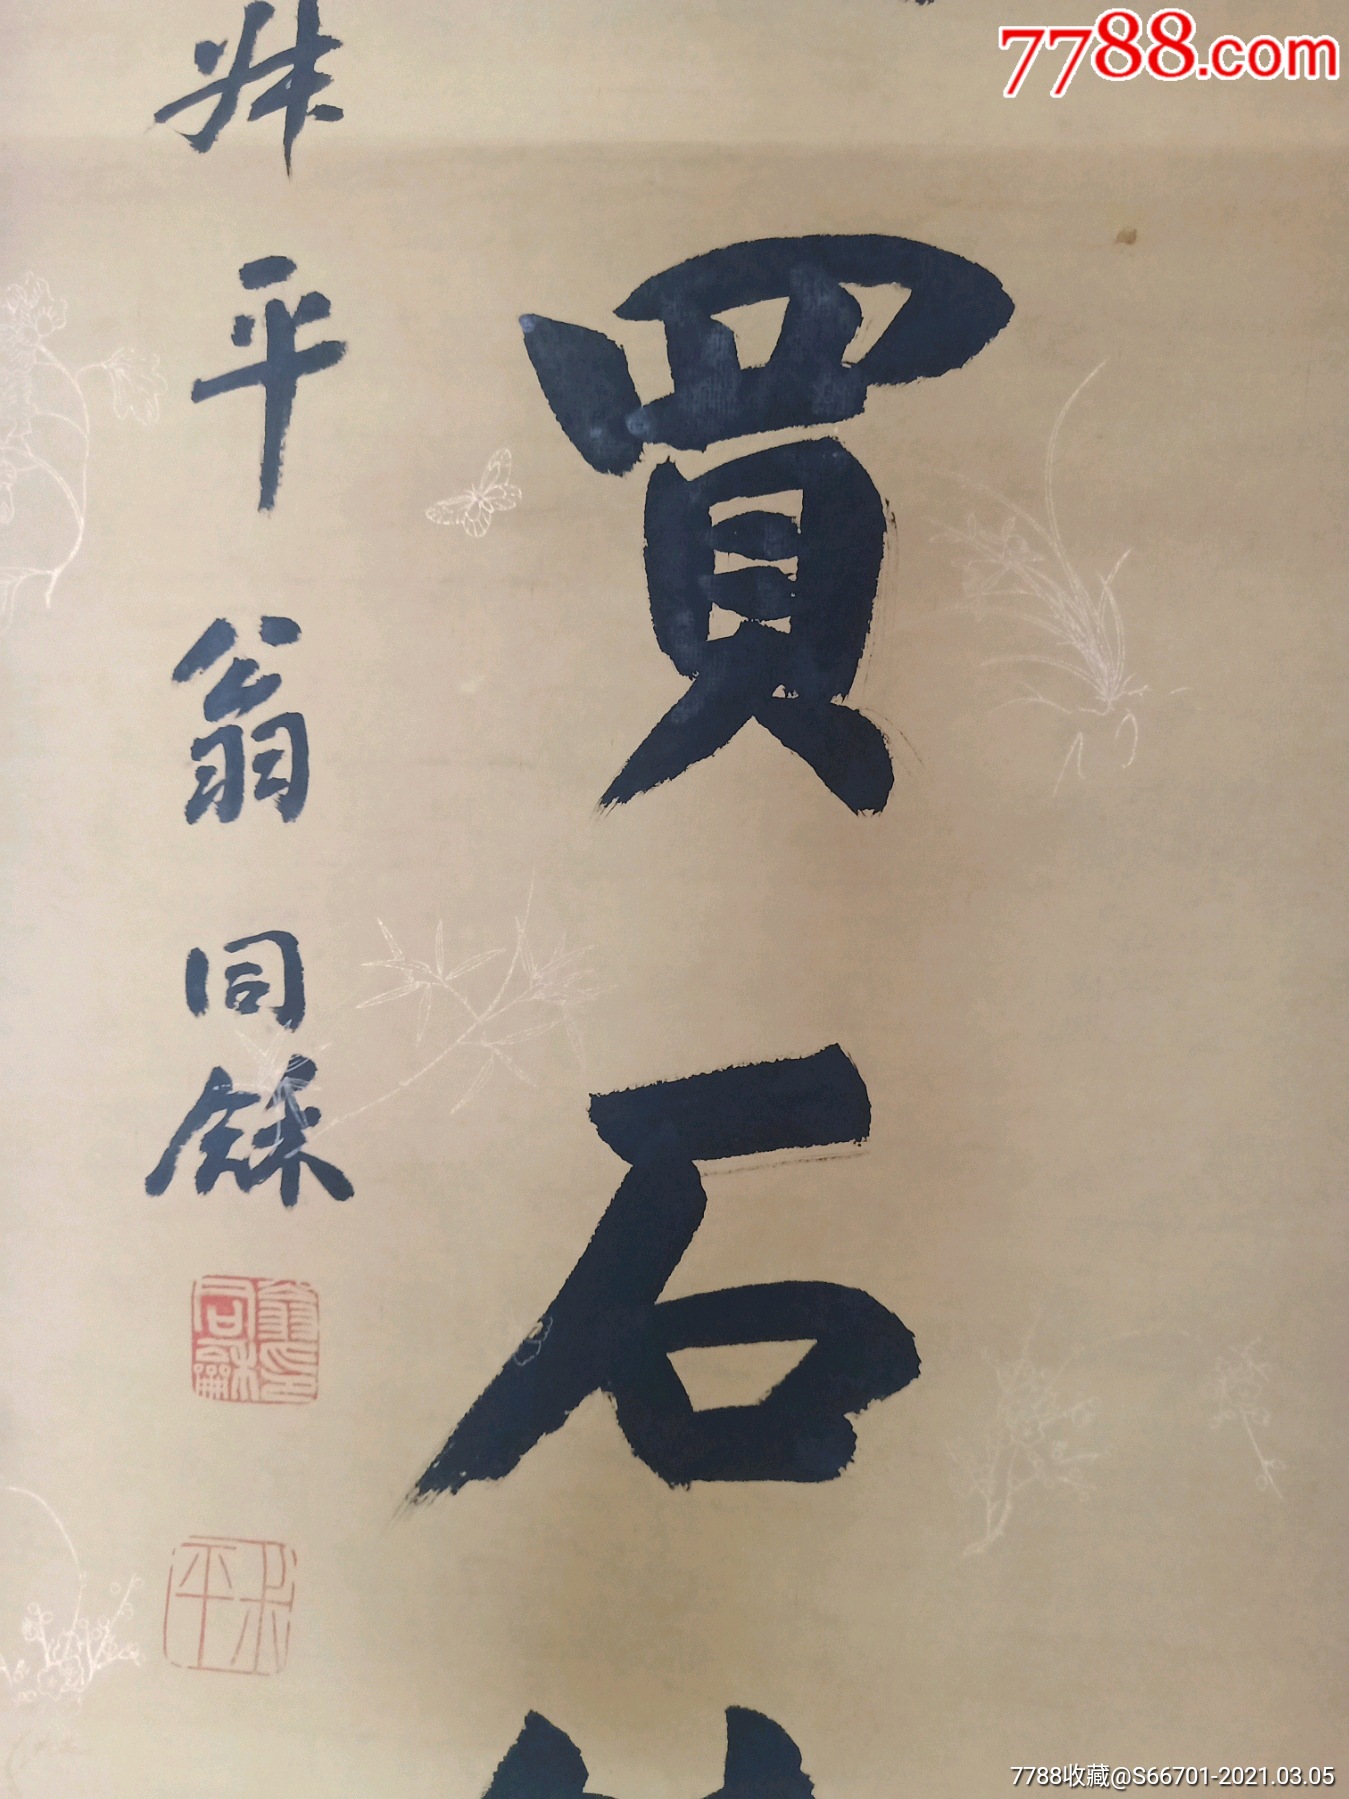 7788.com
買石
叔平翁同龢
翁同龢印
叔平
7788收藏@S66701-2021.03.05